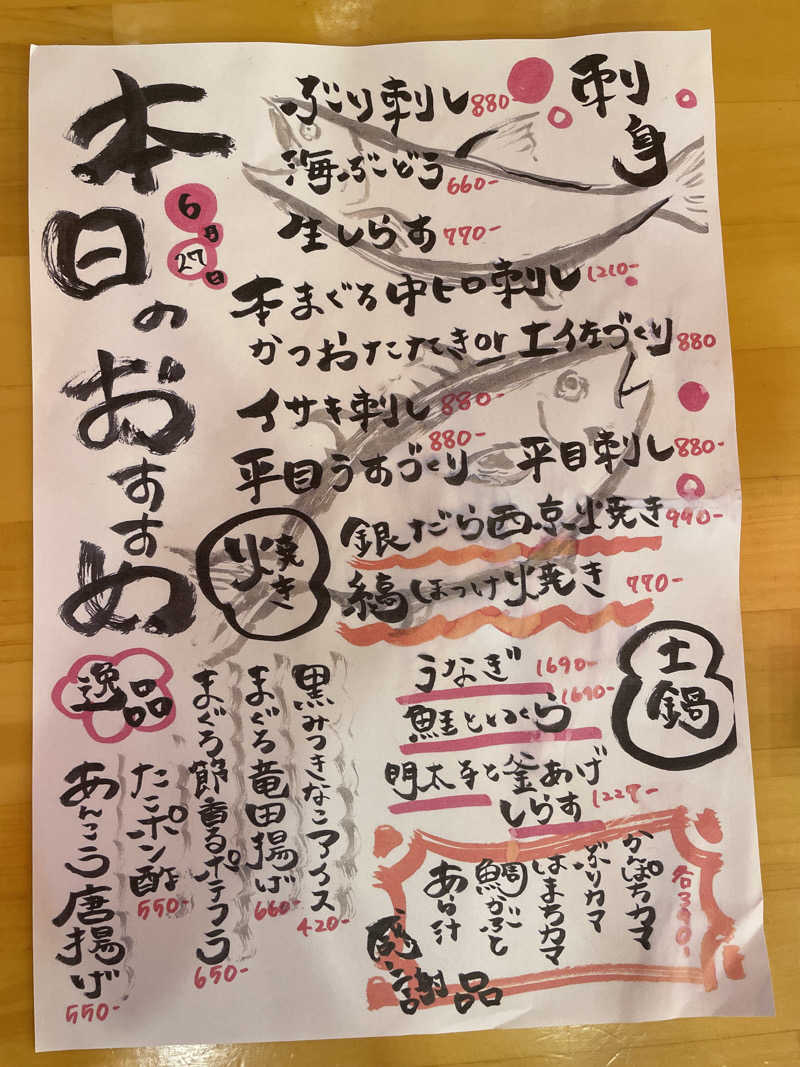 本日のおすすめ
6月27日
刺身
ぶり刺し 880-
海ぶどう 660-
生しらす 770-
本まぐろ中トロ刺し 1210-
かつおたたき or 土佐づくり 880
イサキ刺し 880-
平目うすづくり 880-
平目刺し 880-
焼き
銀だら西京焼き 990-
縞ほっけ焼き 770-
土鍋
うなぎ 1690-
鮭といくら 1690-
明太子と釜あげしらす 1229-
逸品
黒みつきなこアイス 420-
まぐろ竜田揚げ 660-
まぐろ節香るポテフラ 650-
たこポン酢 550-
あんこう唐揚げ 550-
感謝品
かんぱちカマ
ぶりカマ
はまちカマ
鯛かぶと
あら汁